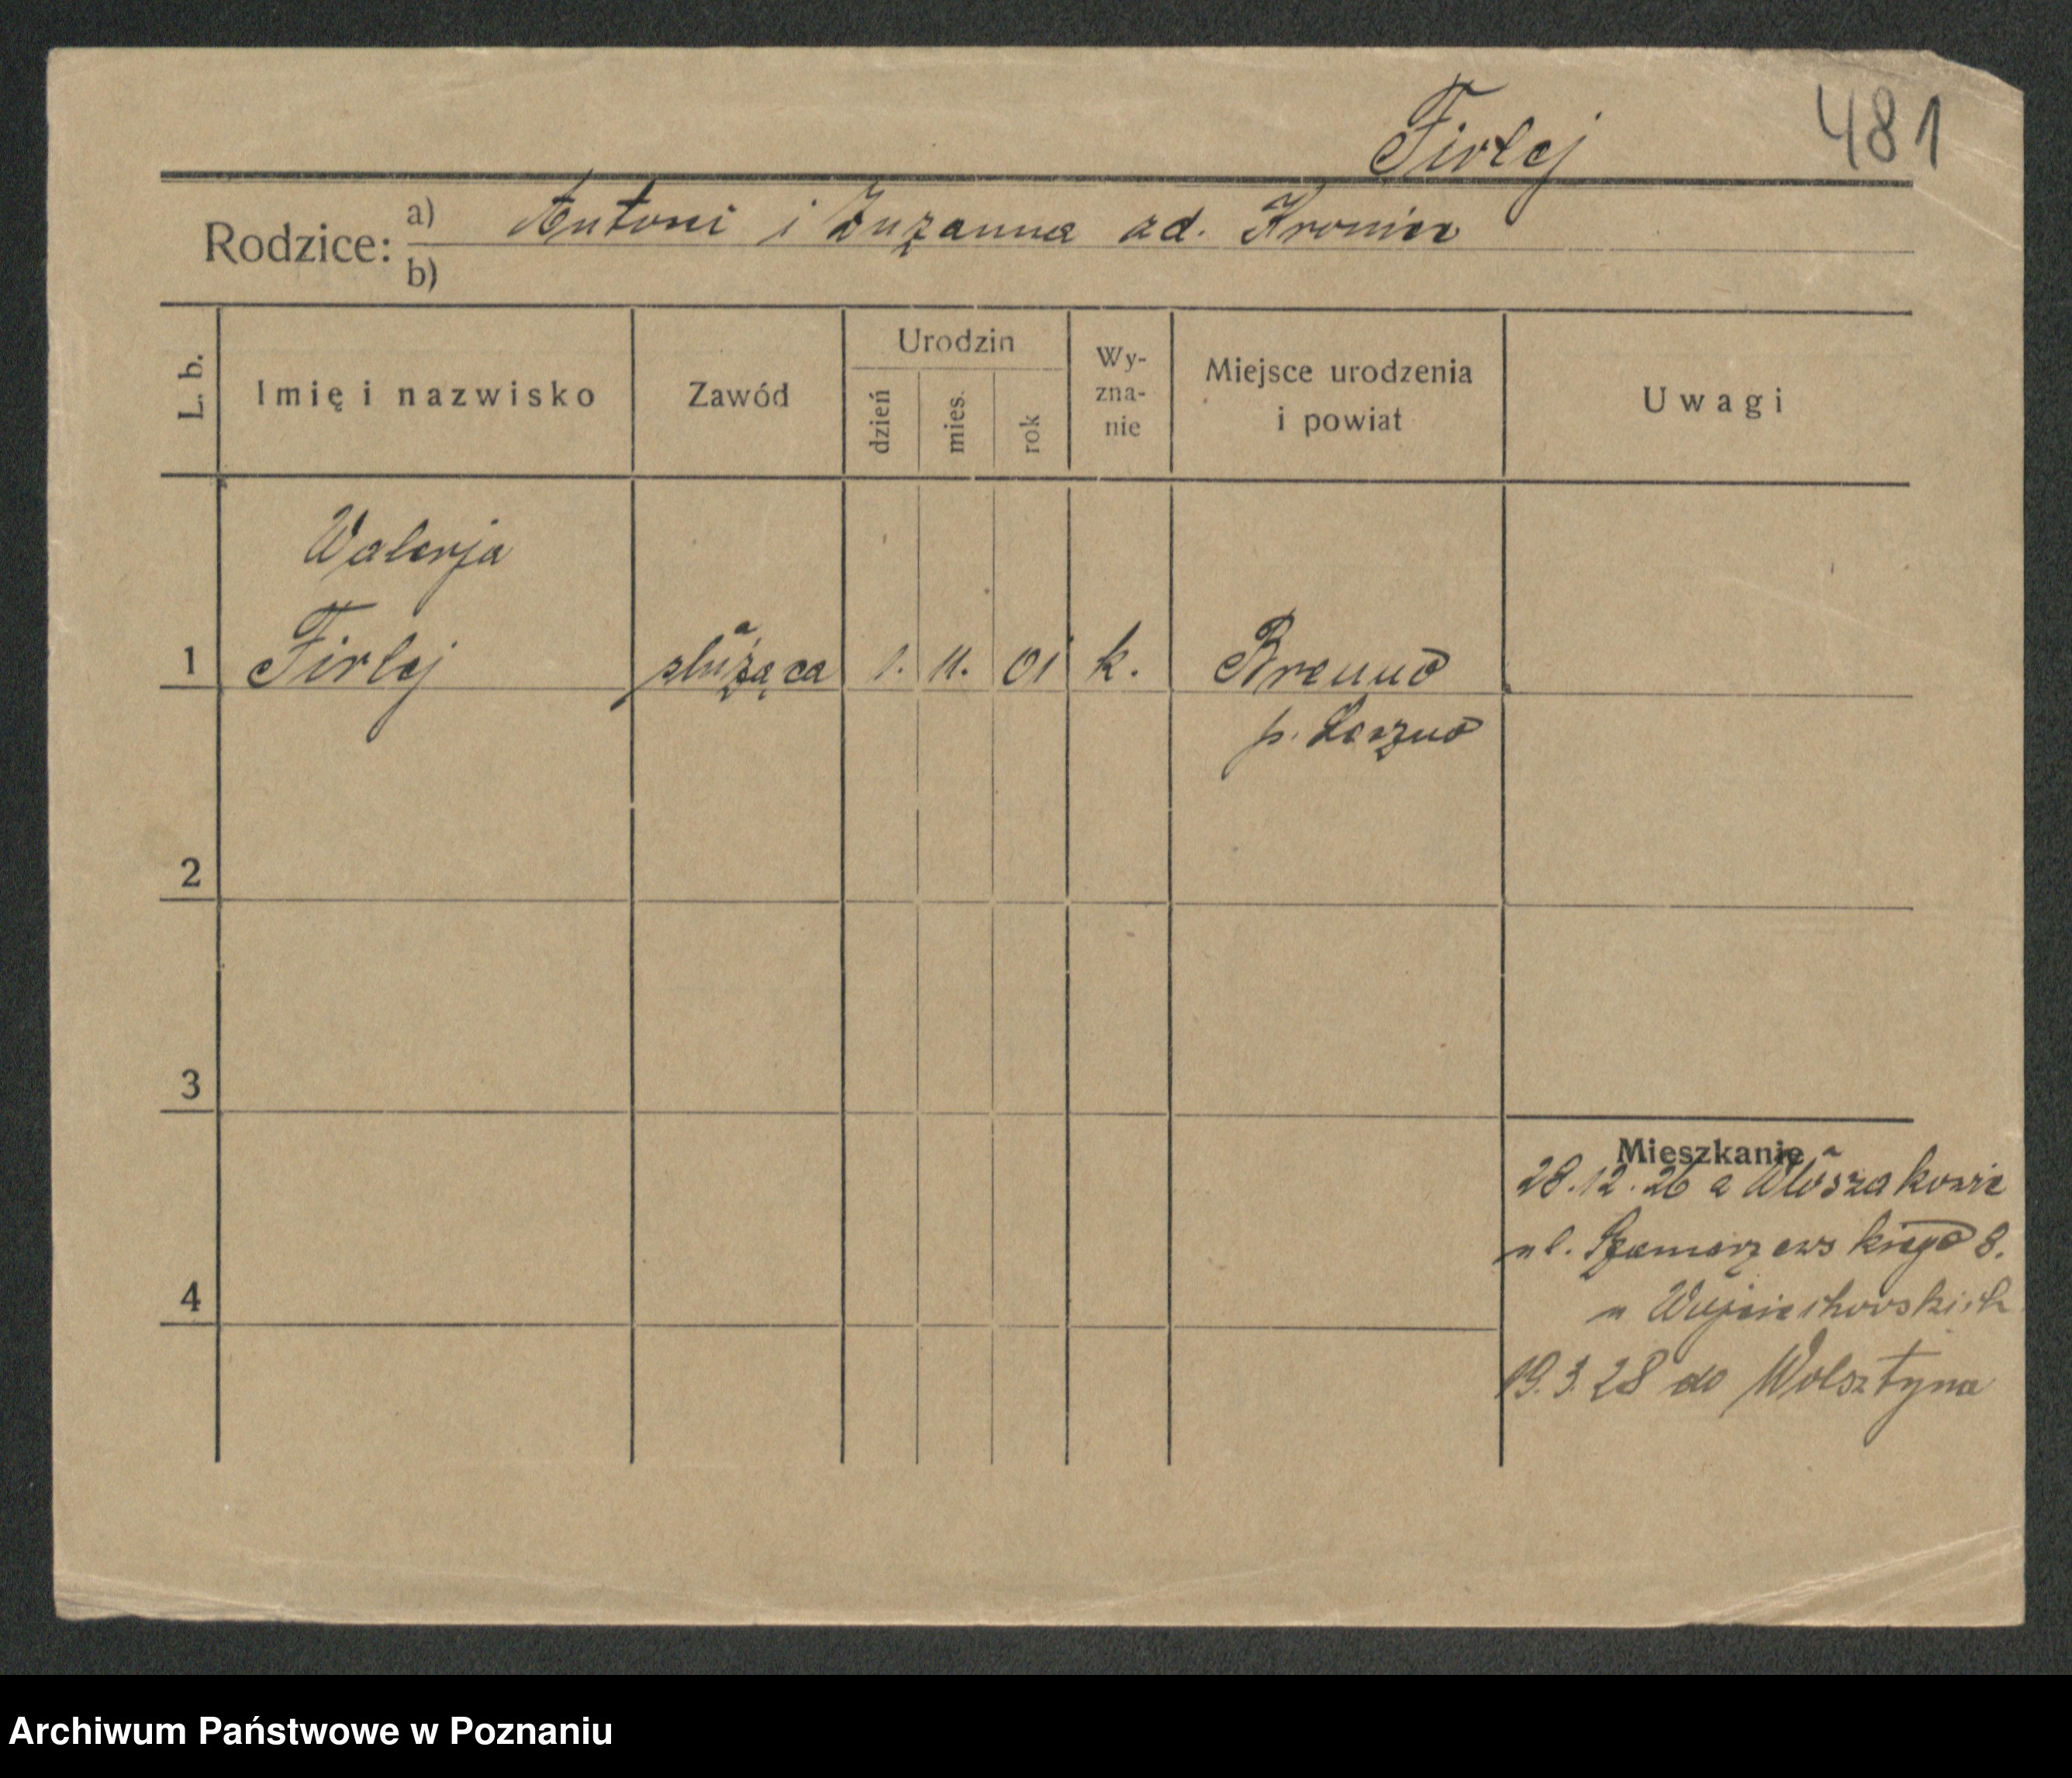 Firlej
481
Rodzice: a) Antoni i Zuzanna zd.
b)
L. b.
Imię i nazwisko
Zawód
Urodzin
dzień
mies.
rok
Wy-
zna-
nie
Miejsce urodzenia
i powiat
Uwagi
Walerja
1 Firlej służąca 1. 11. 01 k. Brenno
p. Leszno
2
3
4
Mieszkanie
28.12.26 z Włoszakowic
ul. Szamarzewskiego 8.
u Wojciechowskich
19.3.28 do Wolsztyna
Archiwum Państwowe w Poznaniu